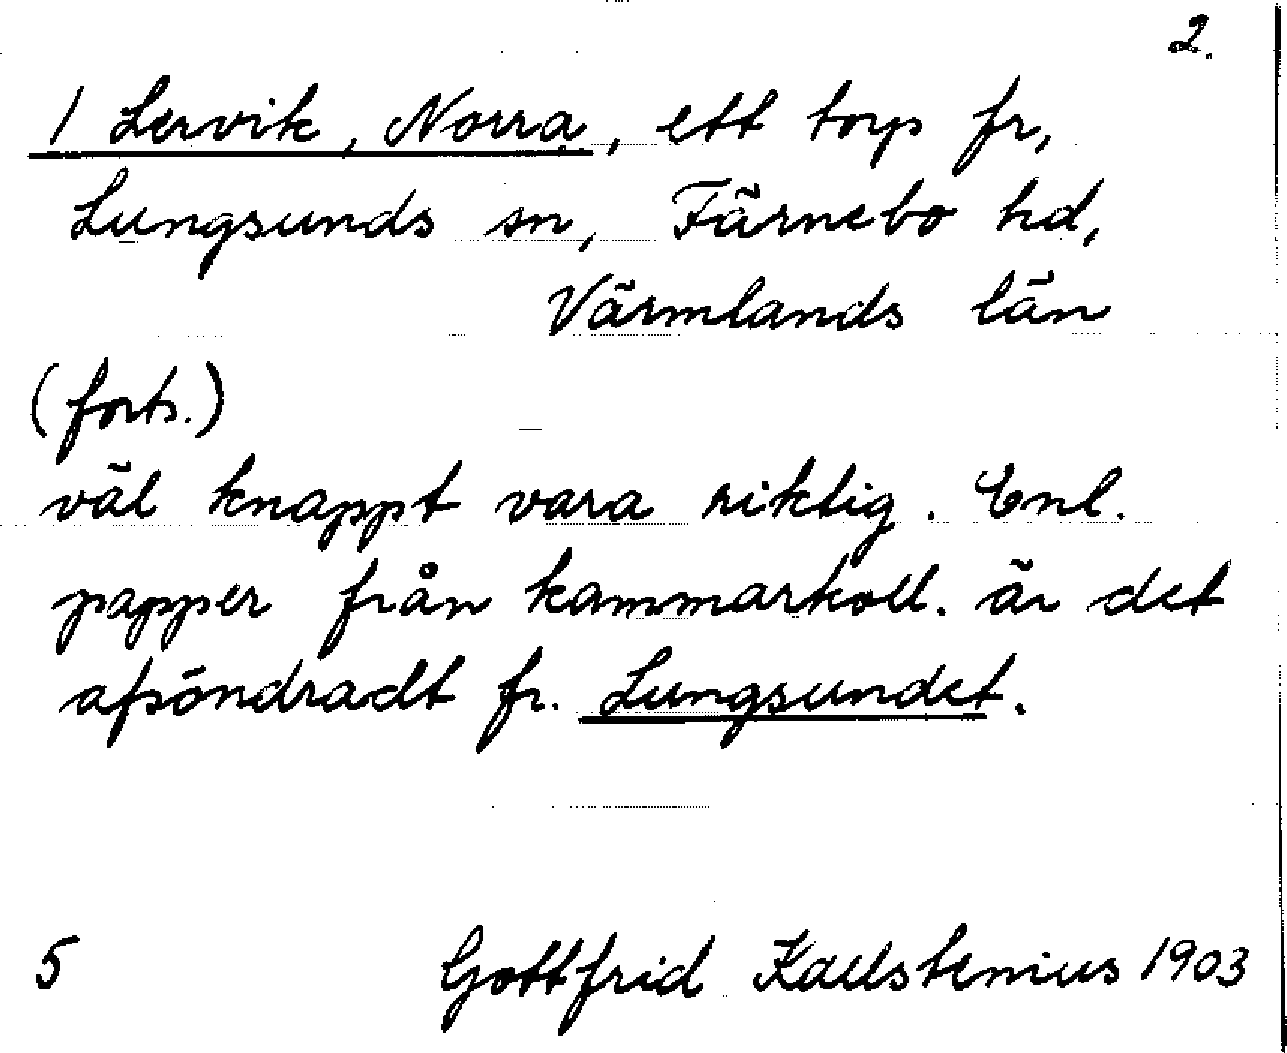 2.
/ Lervik, Norra, ett torp fr,
Lungsunds sn, Färnebo hd,
Värmlands län
(forts.)
väl knappt vara riktig. Enl.
papper från kammarkoll. är det
afsöndradt fr. Lungsundet.
5 Gottfrid Kallstenius 1903